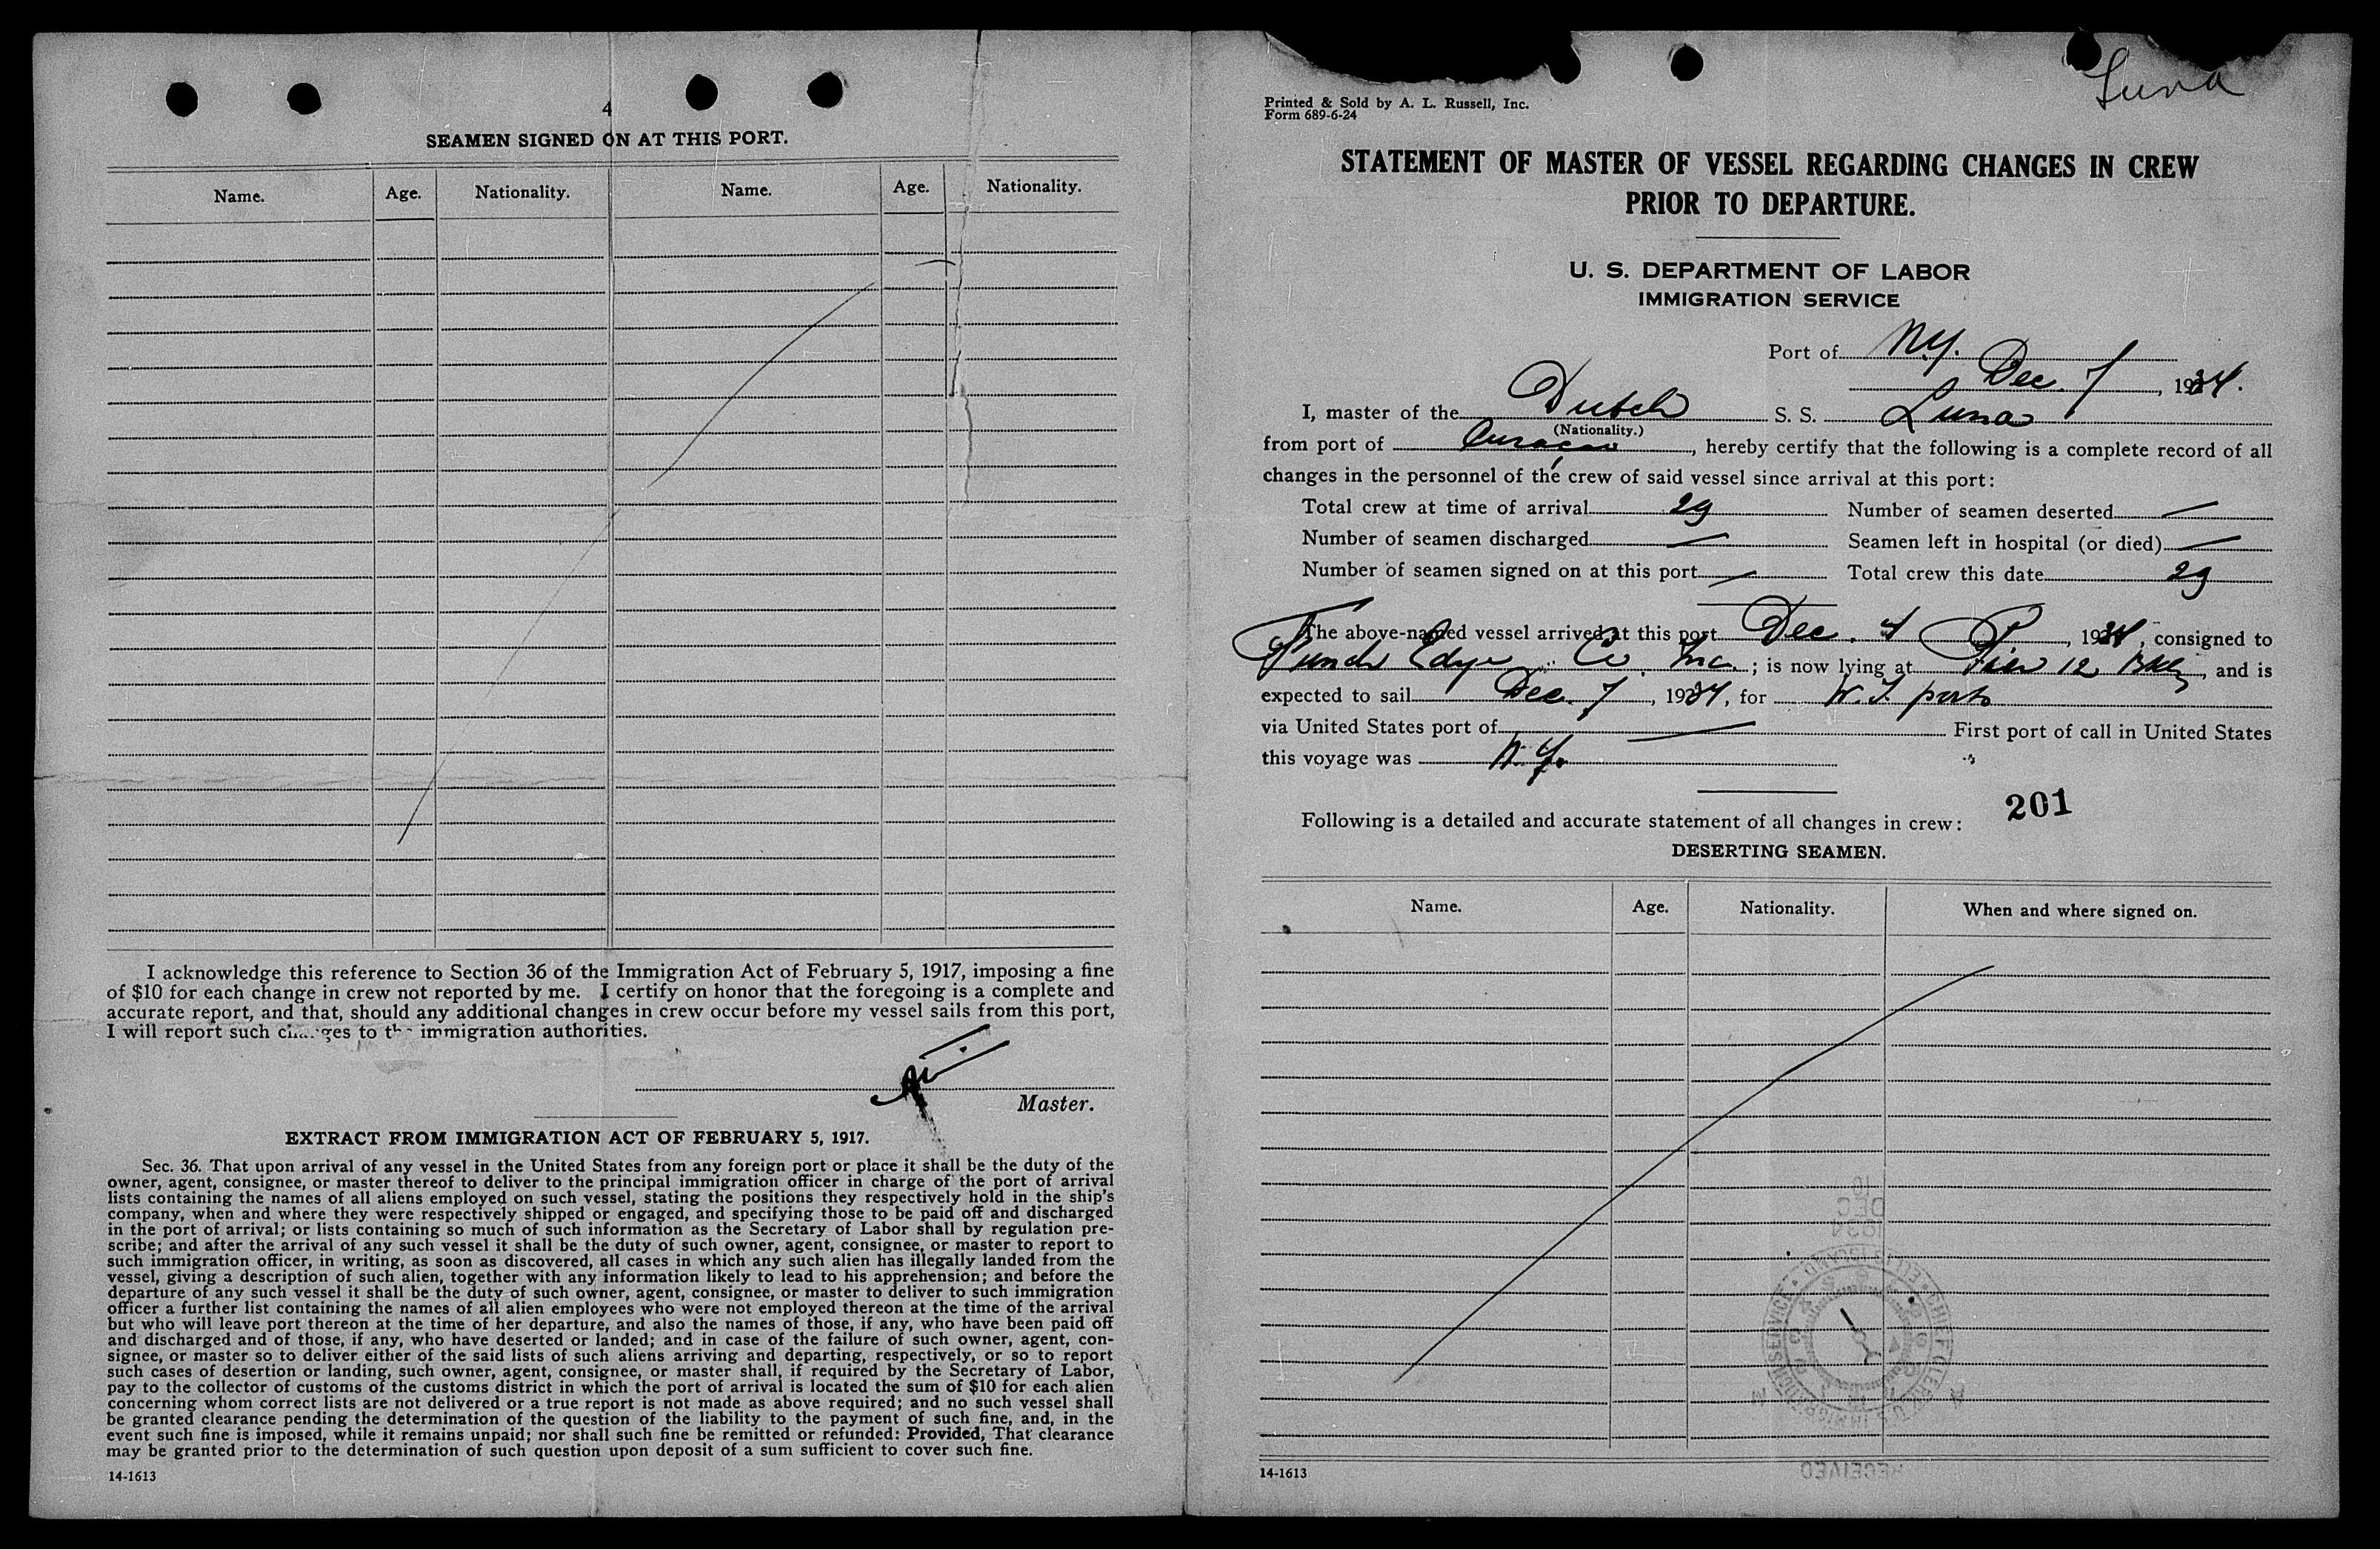 4
SEAMEN SIGNED ON AT THIS PORT.
Name. Age. Nationality. Name. Age. Nationality.
I acknowledge this reference to Section 36 of the Immigration Act of February 5, 1917, imposing a fine
of $10 for each change in crew not reported by me. I certify on honor that the foregoing is a complete and
accurate report, and that, should any additional changes in crew occur before my vessel sails from this port,
I will report such changes to the immigration authorities.
Master.
EXTRACT FROM IMMIGRATION ACT OF FEBRUARY 5, 1917.
Sec. 36. That upon arrival of any vessel in the United States from any foreign port or place it shall be the duty of the
owner, agent, consignee, or master thereof to deliver to the principal immigration officer in charge of the port of arrival
lists containing the names of all aliens employed on such vessel, stating the positions they respectively hold in the ship's
company, when and where they were respectively shipped or engaged, and specifying those to be paid off and discharged
in the port of arrival; or lists containing so much of such information as the Secretary of Labor shall by regulation pre-
scribe; and after the arrival of any such vessel it shall be the duty of such owner, agent, consignee, or master to report to
such immigration officer, in writing, as soon as discovered, all cases in which any such alien has illegally landed from the
vessel, giving a description of such alien, together with any information likely to lead to his apprehension; and before the
departure of any such vessel it shall be the duty of such owner, agent, consignee, or master to deliver to such immigration
officer a further list containing the names of all alien employees who were not employed thereon at the time of the arrival
but who will leave port thereon at the time of her departure, and also the names of those, if any, who have been paid off
and discharged and of those, if any, who have deserted or landed; and in case of the failure of such owner, agent, con-
signee, or master so to deliver either of the said lists of such aliens arriving and departing, respectively, or so to report
such cases of desertion or landing, such owner, agent, consignee, or master shall, if required by the Secretary of Labor,
pay to the collector of customs of the customs district in which the port of arrival is located the sum of $10 for each alien
concerning whom correct lists are not delivered or a true report is not made as above required; and no such vessel shall
be granted clearance pending the determination of the question of the liability to the payment of such fine, and, in the
event such fine is imposed, while it remains unpaid; nor shall such fine be remitted or refunded: Provided, That clearance
may be granted prior to the determination of such question upon deposit of a sum sufficient to cover such fine.
14-1613
Luna
Printed & Sold by A. L. Russell, Inc.
Form 689-6-24
STATEMENT OF MASTER OF VESSEL REGARDING CHANGES IN CREW
PRIOR TO DEPARTURE.
U. S. DEPARTMENT OF LABOR
IMMIGRATION SERVICE
Port of N.Y.
Dec. 7, 1934.
I, master of the Dutch S. S. Luna
(Nationality.)
from port of Curaçao, hereby certify that the following is a complete record of all
changes in the personnel of the crew of said vessel since arrival at this port:
Total crew at time of arrival 29 Number of seamen deserted —
Number of seamen discharged — Seamen left in hospital (or died) —
Number of seamen signed on at this port — Total crew this date 29
The above-named vessel arrived at this port Dec. 4, 1934, consigned to
Funch Edye Co. Inc.; is now lying at Pier 12 Bkly, and is
expected to sail Dec. 7, 1934, for W. I. ports
via United States port of — First port of call in United States
this voyage was N.Y.
201
Following is a detailed and accurate statement of all changes in crew:
DESERTING SEAMEN.
Name. Age. Nationality. When and where signed on.
10
DEC
1934
RECEIVED
14-1613